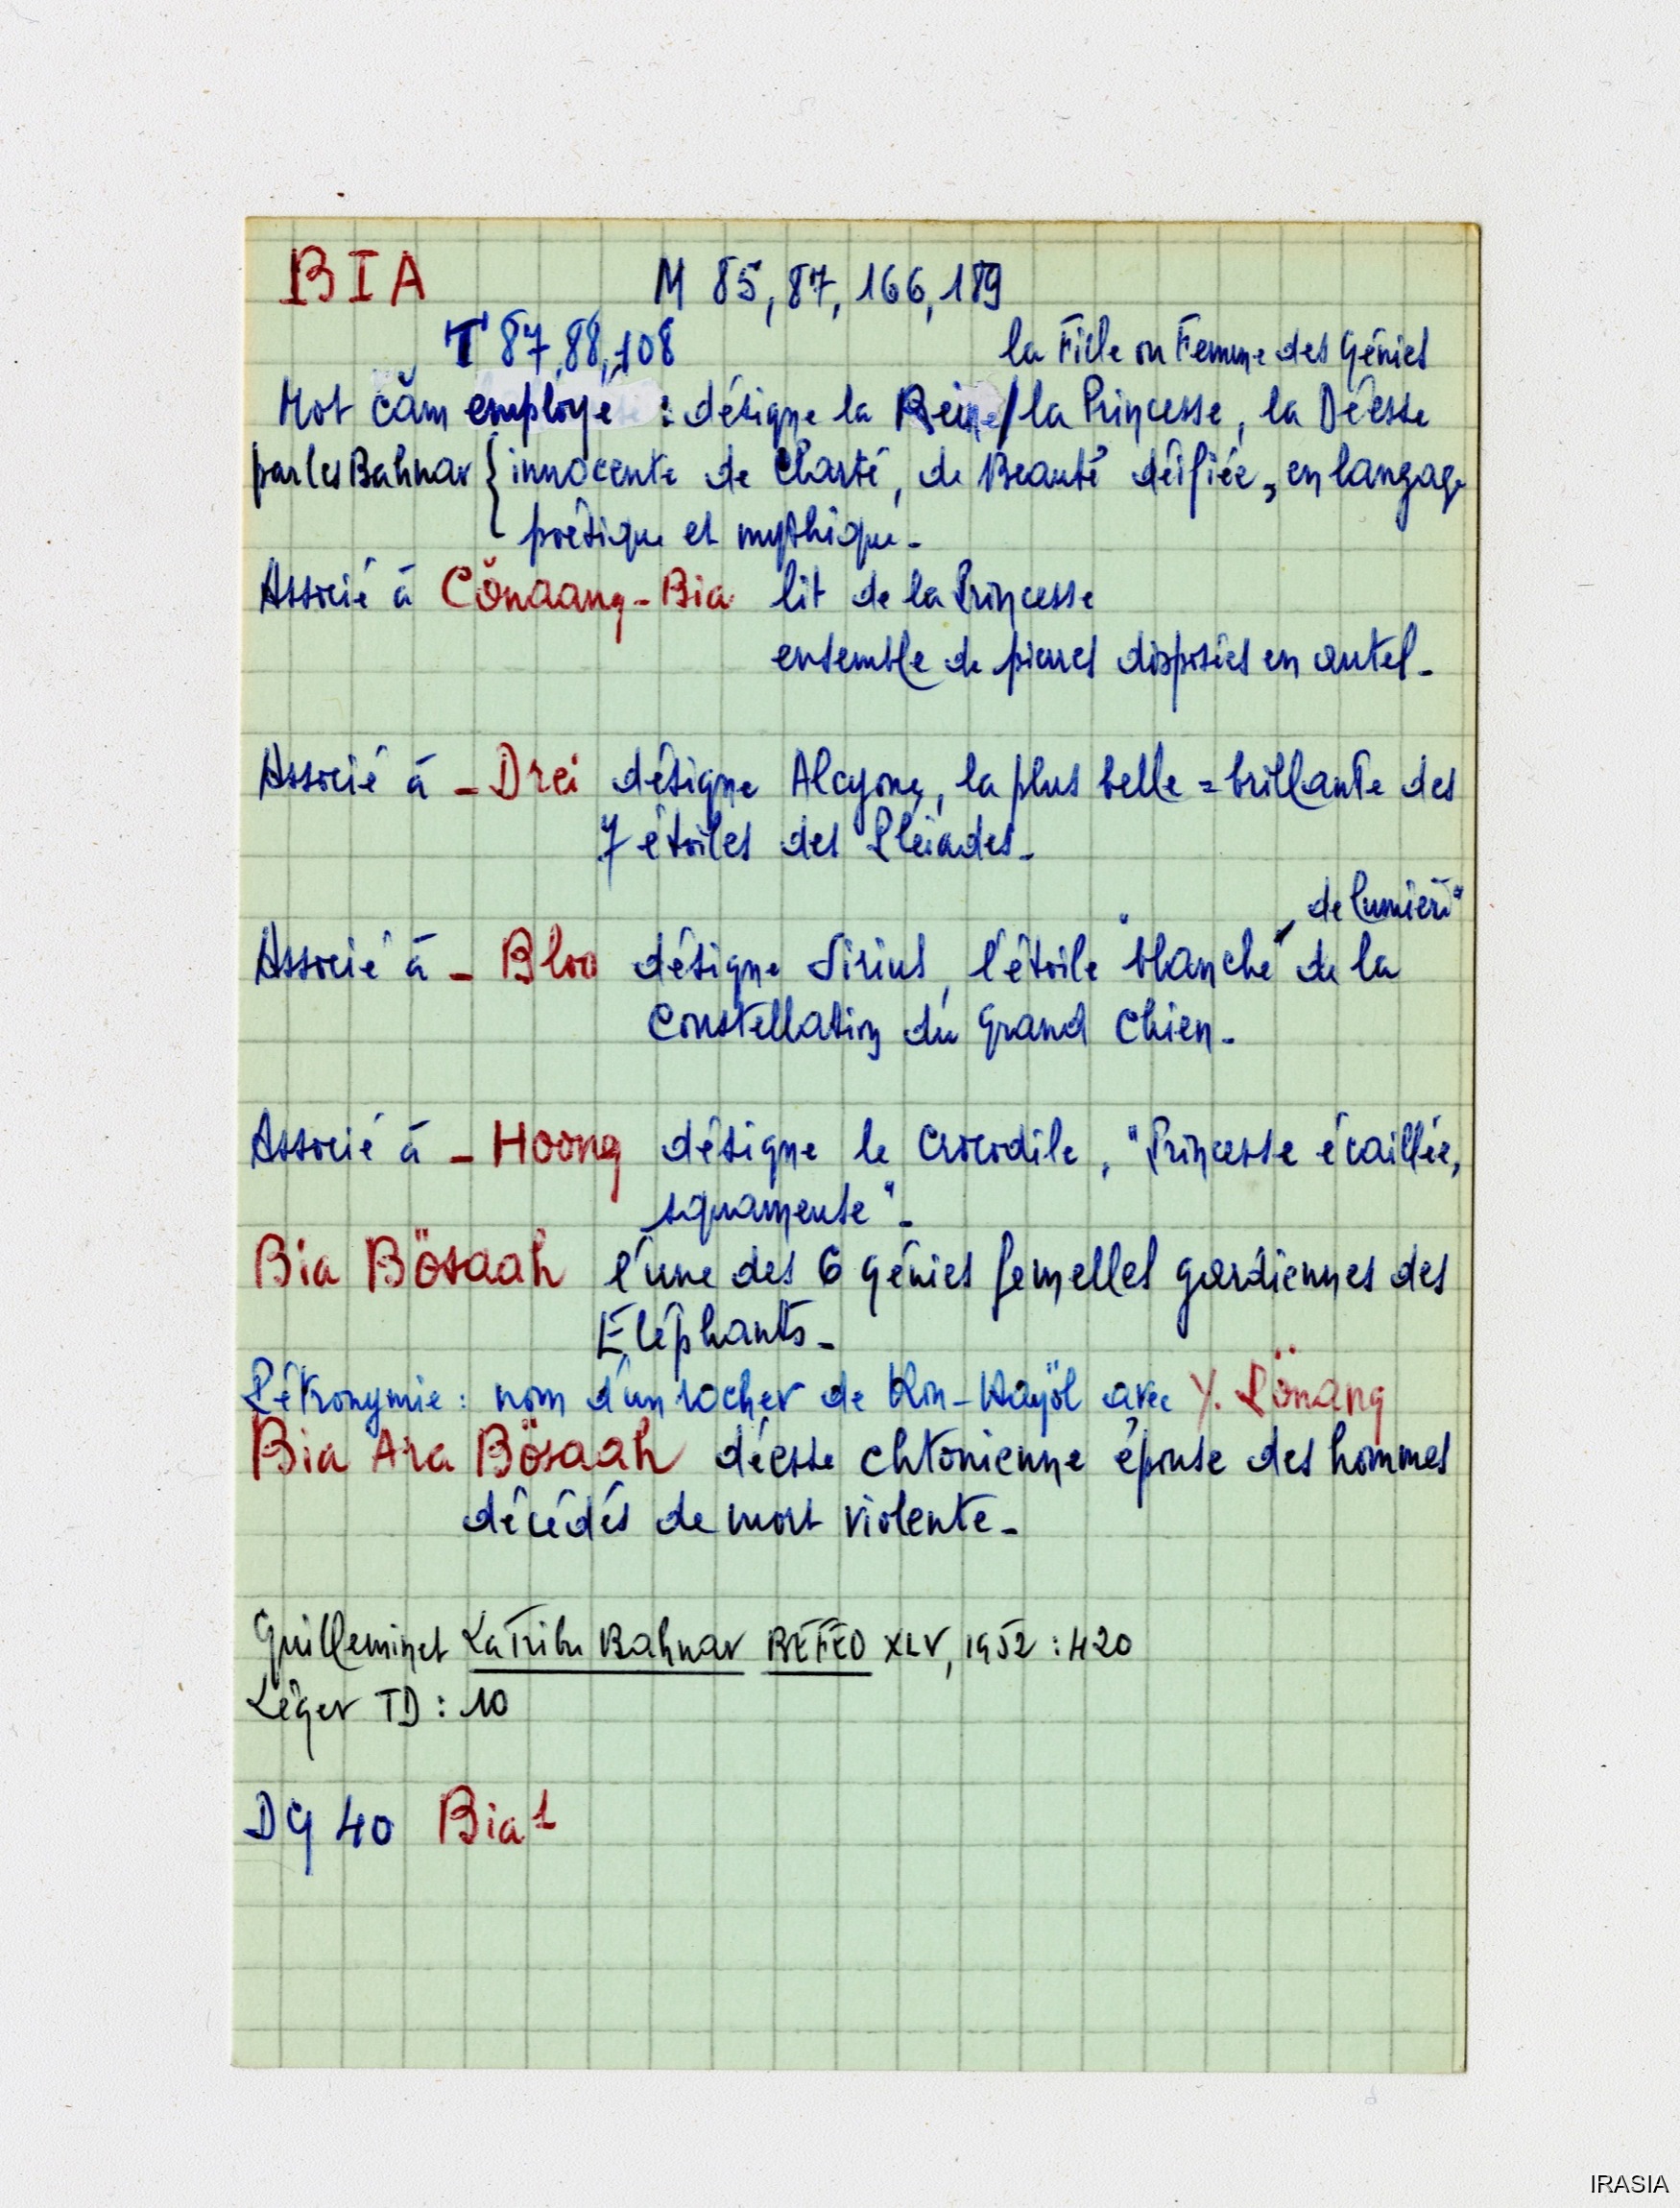 BIA M 85, 87, 166, 189
T 87, 88, 108
la Fille ou Femme des Génies
Mot căm employé : désigne la Reine/la Princesse, la Déesse
par les Bahnar { innocente de Clarté, de Beauté déifiée, en langage
poétique et mythique.
Associé à Cŏnaang-Bia lit de la Princesse
ensemble de pierres disposées en autel.
Associé à - Drei désigne Alcyone, la plus belle = brillante des
7 étoiles des Pléiades.
de lumière"
Associé à - Bloo désigne Sirius, l'étoile "blanche de la
Constellation du Grand Chien.
Associé à - Hoong désigne le Crocodile, "Princesse écaillée,
squameuse".
Bia Bösaah l'une des 6 génies femelles gardiennes des
Eléphants.
Pétronymie : nom d'un rocher de Kon-Kayöl avec Y. Pönang
Bia Ara Bösaah déesse chtonienne épouse des hommes
décédés de mort violente.
Guilleminet La Tribu Bahnar BEFEO XLV, 1952 : 420
Léger TD : 10
DG 40 Bia 1
IRASIA